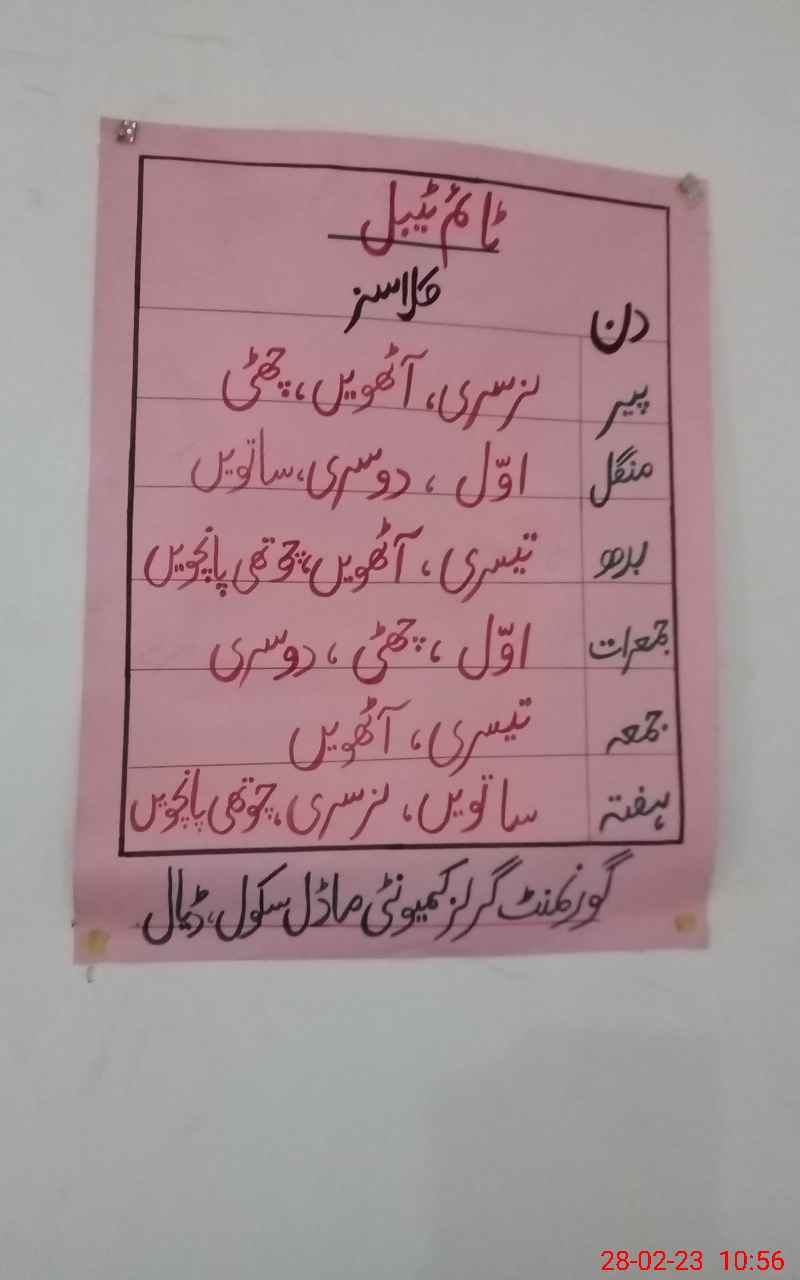 ٹائم ٹیبل
دن کلاسز
پیر نرسری، آٹھویں، چھٹی
منگل اوّل ، دوسری، ساتویں
بدھ تیسری ، آٹھویں، چوتھی پانچویں
جمعرات اوّل ، چھٹی ، دوسری
جمعہ تیسری ، آٹھویں
ہفتہ ساتویں، نرسری، چوتھی پانچویں
گورنمنٹ گرلز کمیونٹی ماڈل سکول، ڈیال
28-02-23 10:56